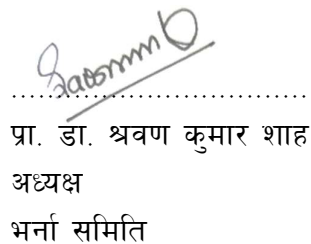 ................................
प्रा. डा. श्रवण कुमार शाह
अध्यक्ष
भर्ना समिति